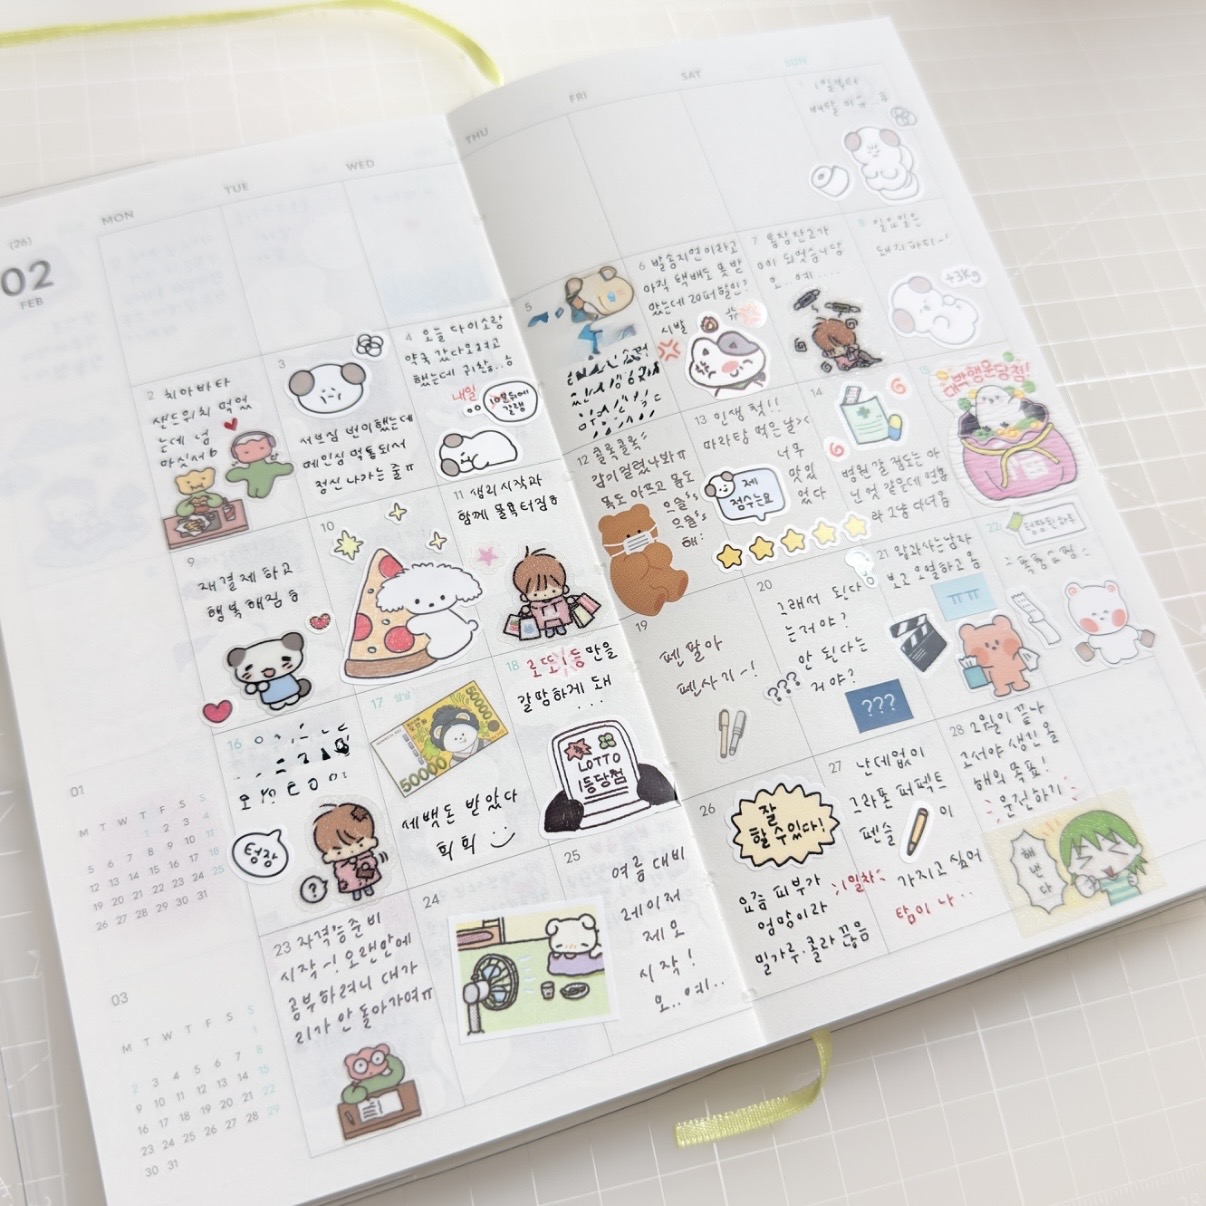 (26)
02
FEB
MON
TUE
WED
THU
FRI
SAT
SUN
2 치아바타
샌드위치 먹었
는데 넘
마싯서b
3
서브심 번이했는데
메인심 먹통되서
정신 나가는 줄ㅠ
4 오늘 다이소랑
약국 갔다오려고
했는데 귀찮..
내일
10분뒤에
갈랭
5
6 발송지연이라고
아직 택배도 못 받
았는데 20퍼할인?
시발
7 통장잔고가
0이 되었습니당
오..예....
8
일요일은
돼지파티~!
+3Kg
9
재결제 하고
행복해짐
10
11 생리 시작과
함께 물욕 터짐
12 콜록콜록
감기 걸렸나봐ㅠ
목도 아프고 몸도
으슬's
으슬's
해:
13 인생 첫!!
마라탕 먹은 날><
너무
맛있
었다
제
점수는요
14
병원 갈 정도는 아
닌 것 같은데 여튼
라 그냥 다녀옴
15
대박행운당첨!
16
텅장
?
17
설날
50000
50000
세뱃돈 받았다
히히
18 로또1등만을
갈망하게 돼
...
LOTTO
1등당첨
19
펜팔아
펜사기~!
20
그래서 된다
는거야?
안 된다는
거야?
???
???
21 왕과사는남자
보고 오열하고 옴
ㅠㅠ
22
텅장된하루
23 자격증준비
시작~! 오랜만에
공부하려니 대가
리가 안 돌아가여ㅠ
24
25
여름 대비
레이저
제모
시작!
오..예..
26
잘
할 수 있다!
요즘 피부가
엉망이라
밀가루·콜라 끊음
1일차
27
난데없이
그라폰 퍼펙트
펜슬 이
가지고 싶어
탐이 나..
28 2월이 끝나
고서야 생긴 올
해의 목표!
운전하기
해낸다
01
M T W T F S S
1 2 3 4
5 6 7 8 9 10 11
12 13 14 15 16 17 18
19 20 21 22 23 24 25
26 27 28 29 30 31
03
M T W T F S S
1
2 3 4 5 6 7 8
9 10 11 12 13 14 15
16 17 18 19 20 21 22
23 24 25 26 27 28 29
30 31